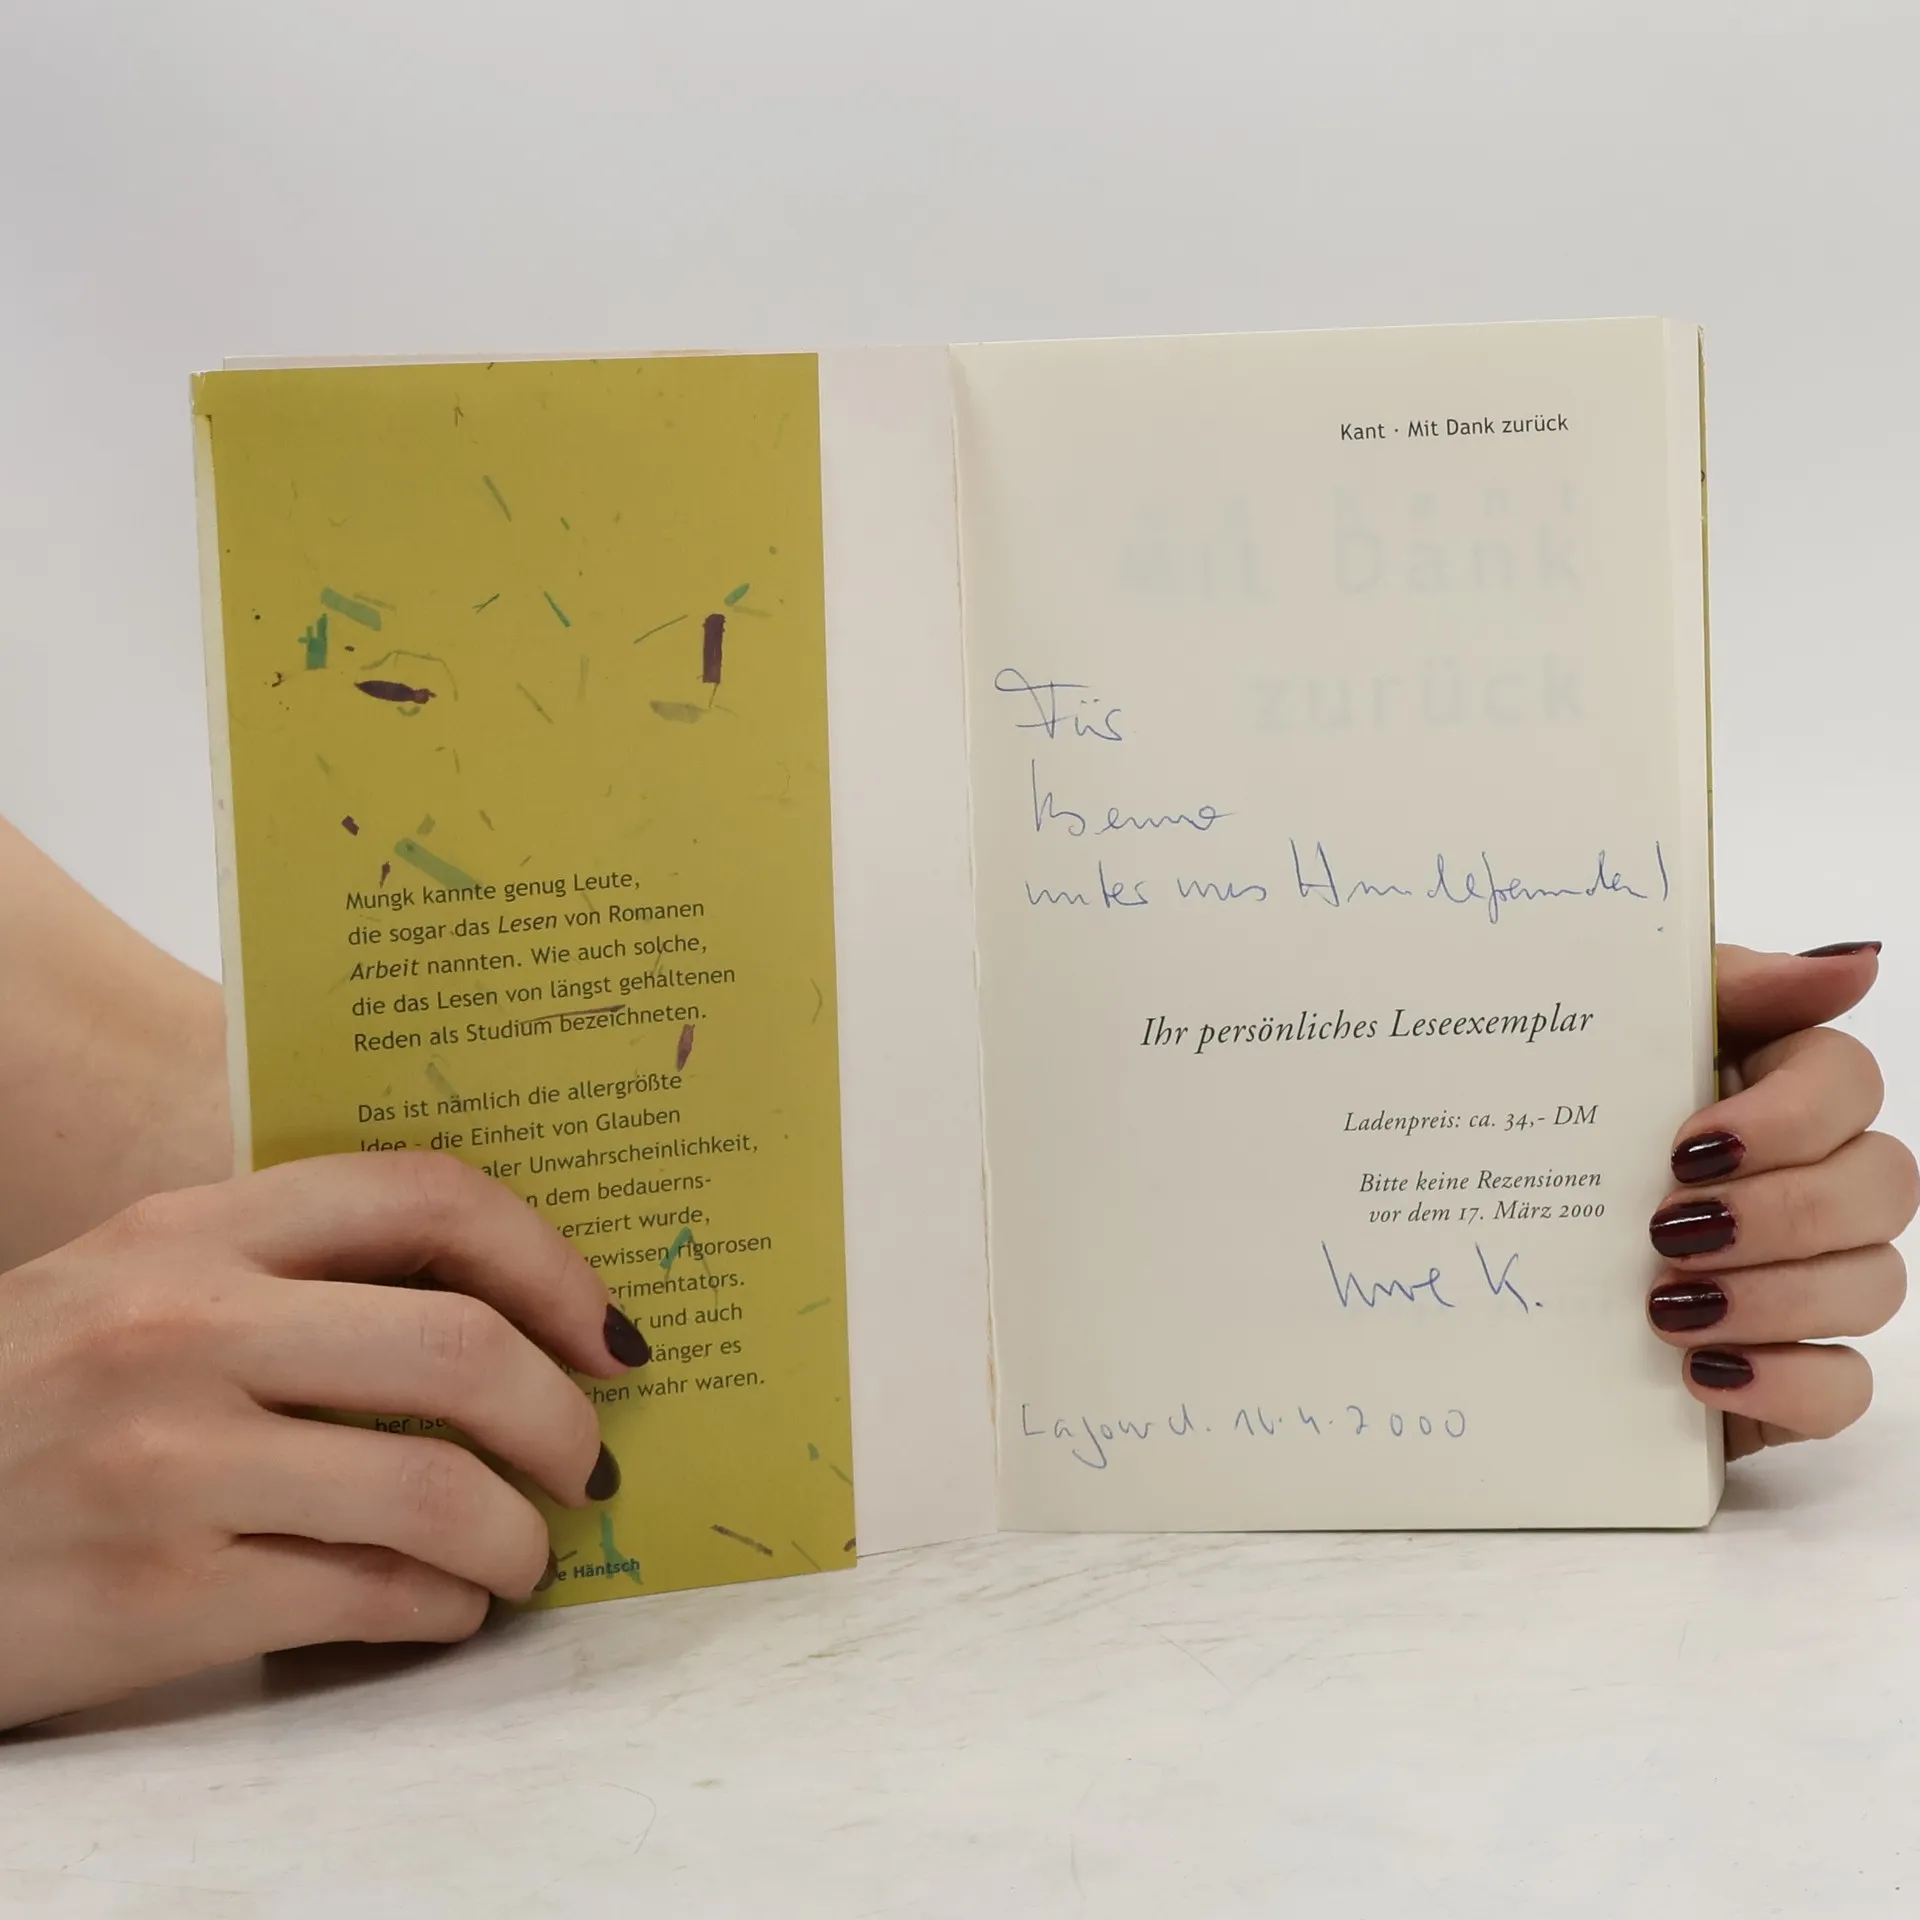 Mungk kannte genug Leute,
die sogar das Lesen von Romanen
Arbeit nannten. Wie auch solche,
die das Lesen von längst gehaltenen
Reden als Studium bezeichneten.
Das ist nämlich die allergrößte
Idee - die Einheit von Glauben
aler Unwahrscheinlichkeit,
n dem bedauerns-
erziert wurde,
ewissen rigorosen
erimentators.
r und auch
länger es
chen wahr waren.
her ist
e Häntsch
Kant · Mit Dank zurück
Mit Dank
zurück
Für
Benno
unter uns Hundefreunden!
Ihr persönliches Leseexemplar
Ladenpreis: ca. 34,- DM
Bitte keine Rezensionen
vor dem 17. März 2000
Uwe K.
2000